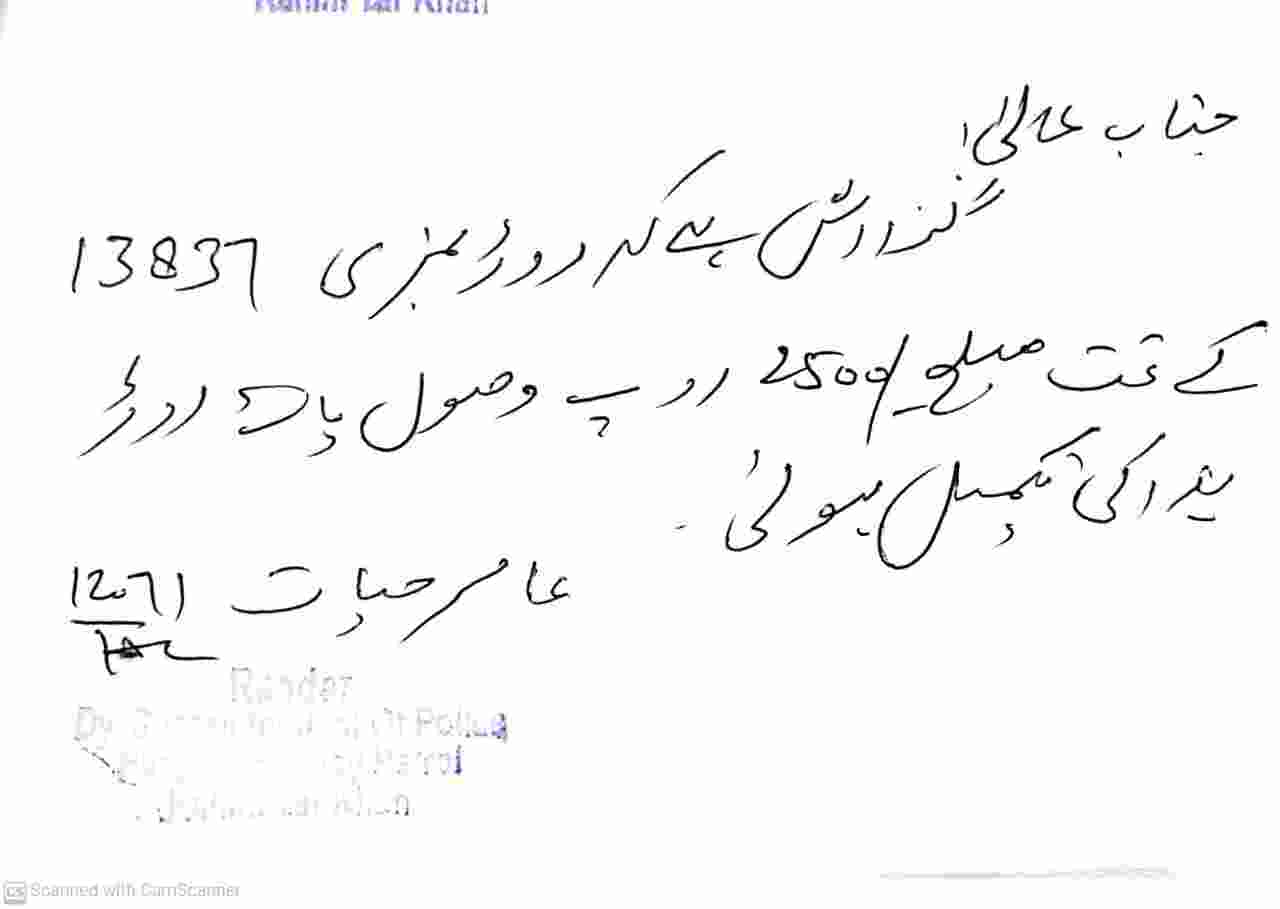 Rahim Yar Khan
جناب عالیٰ!
گزارش ہے کہ روڈ نمبری 13837
کے تحت مبلغ 2500/ روپے وصول پا کر روڈ
ہذا کی تکمیل ہوئی۔
عامر حیات 12071
Reader
Of Police
Patrol
Scanned with CamScanner